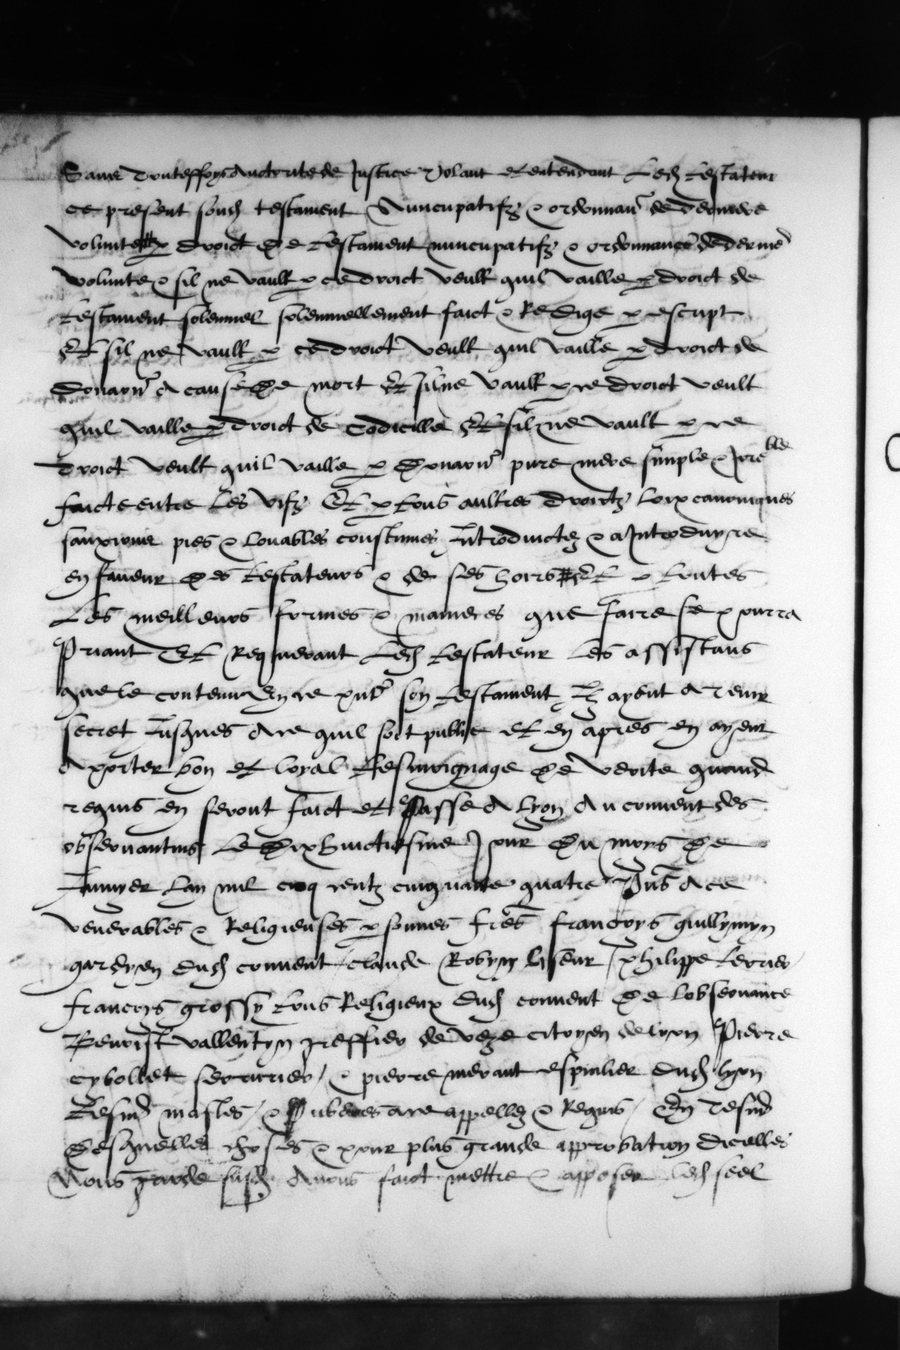 Sauve touteffoys auctorite de Justice Volant et entendent led testateur
ce present soud testament Nuncupatifz & ordonnan de derniere
volunte p droict de testament nuncupatifz & ordonnance de dernie
volunte & sil ne vault p ce droict veult quil vaille p droict de
testament solemnel solemnellement faict & Redige p escript
Et sil ne vault p ce droict veult quil vaille p droict de
donaon a cause de mort Et silne vault p ce droict veult
quil vaille p droict de Codicille Et sil ne vault p ce
droict veult quil vaille p donaon pure mere simple & Irre
faicte entre les vifz Et p tous aultres droictz loix canoniques
sanxions pies & louables coustumes Introductez & a Introduyre
en faveur des testateurs & de ses hoirs Et & toutes
les meilleurs formes & manieres que faire se pourra
Priant Et Requerant led testateur les assistans
que le contenu en ce pnt son testament Ilz ayent a tenir
secret Jusques a ce quil soit publie et en apres en ayent
a porter bon et loyal tesmoignage de verite quand
requis en seront faict et Passe a lyon Au couvent des
observantins Le dixhuictiesme Jour du moys de
Janvyer lan mil cinq centz cinquante quatre Pns a ce
venerables & Religieuses psonnes freres francoys guillymyn
gardyen dud couvent Claude Robyn liseur philippe terrier
francoys grossy tous Religieux dud couvent de lobservance
Benoist vallentyn greffier de veze citoyen de lyon Pierre
cybollet serrurier & pierre morant espinlier dud lyon
Tesmd masles & Puberes a ce appellez & Requis En Tesmd
desquelles choses & pour plus grande approbation dicelles
Nous garde susd Avons faict mettre & apposer led seel